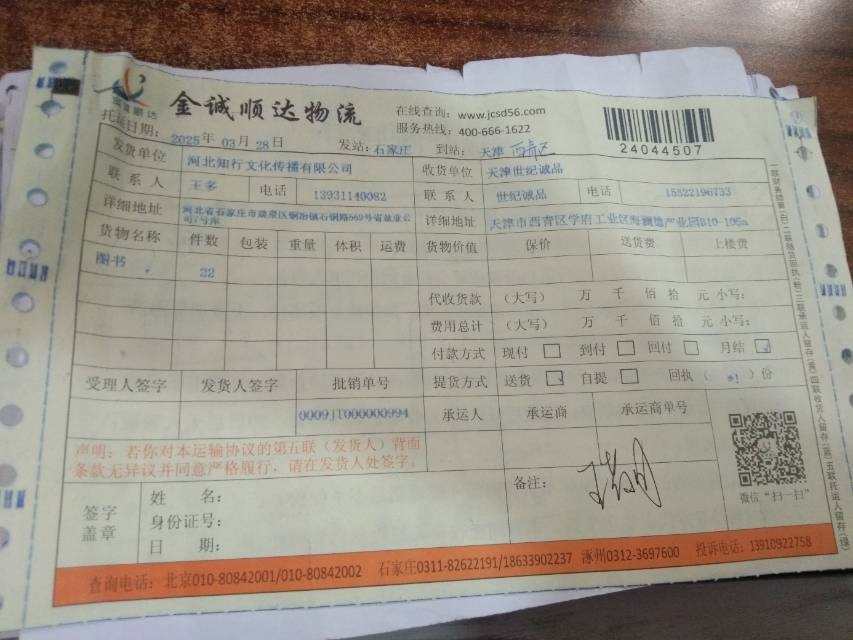 金诚顺达物流
在线查询: www.jcsd56.com
服务热线: 400-666-1622
24044507
托运日期: 2025年 03月 28日 发站: 石家庄 到站: 天津 西青区
发货单位 河北知行文化传播有限公司 收货单位 天津世纪诚品
联系人 王多 电话 13931140082 联系人 世纪诚品 电话 15822196733
详细地址 河北省石家庄市鹿泉区铜冶镇石铜路569号 详细地址 天津市西青区学府工业区海澜德产业园B10-105
货物名称 件数 包装 重量 体积 运费 货物价值 保价 送货费 上楼费
图书 22
代收货款 (大写) 万 千 佰 拾 元 小写:
费用总计 (大写) 万 千 佰 拾 元 小写:
付款方式 现付 到付 回付 月结
受理人签字 发货人签字 批销单号 提货方式 送货 自提 回执( *1 )份
0009JT000000994 承运人 承运商 承运商单号
声明: 若你对本运输协议的第五联(发货人)背面
条款无异议并同意严格履行,请在发货人处签字。
签字
盖章
姓 名:
身份证号:
日 期:
备注:
微信“扫一扫”
查询电话: 北京010-80842001/010-80842002 石家庄0311-82622191/18633902237 涿州0312-3697600 投诉电话: 13910922758